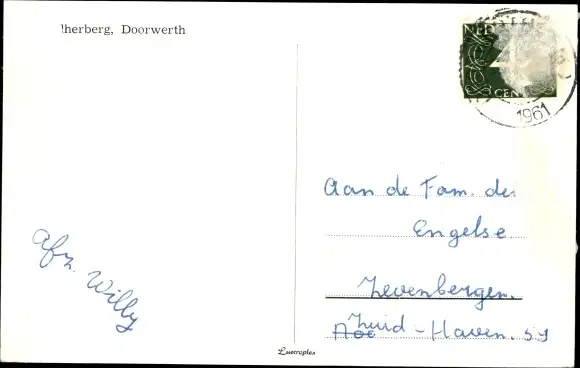 'herberg, Doorwerth
NED
4
CENT
1961
Aan de Fam. de
Engelse
Zevenbergen.
Noo Zuid-Haven. 59
Afz. Willy
Luxcroplex